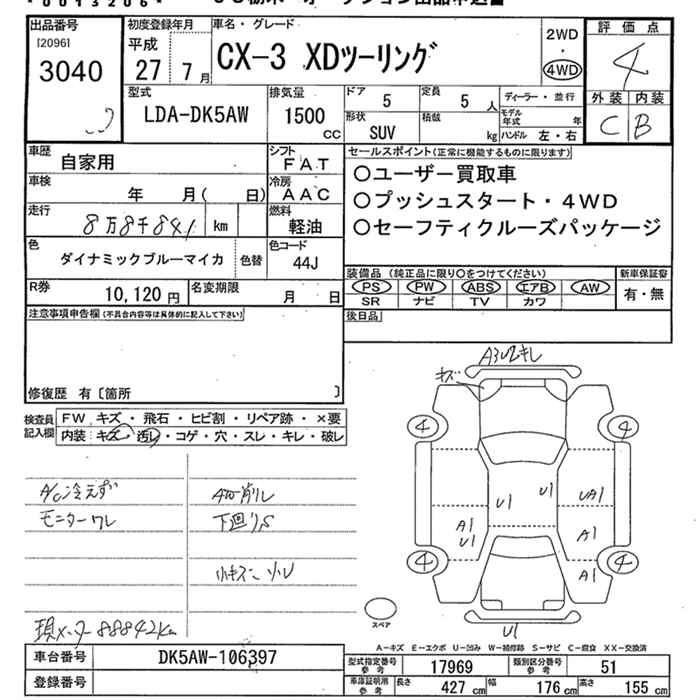 *0013206*
出品番号
[2096]
3040
初度登録年月
平成
27年7月
車名・グレード
CX-3 XDツーリング
2WD
・
4WD
評価点
4
外装 内装
C B
型式
LDA-DK5AW
排気量
1500
CC
ドア 5
定員 5 人
形状 SUV
積載 kg
ディーラー・並行
モデル年式 年
ハンドル 左・右
車歴 自家用
シフト FAT
車検 年 月( 日)
冷房 AAC
走行 8万8千841 km
燃料 軽油
色 ダイナミックブルーマイカ
色替
色コード 44J
R券 10,120円
名変期限 月 日
セールスポイント(正常に機能するものに限ります)
○ユーザー買取車
○プッシュスタート・4WD
○セーフティクルーズパッケージ
装備品(純正品に限り○をつけてください)
新車保証書
PS PW ABS エアB AW
有・無
SR ナビ TV カワ
後日品
注意事項申告欄(不具合内容等は具体的に記入して下さい)
修復歴 有〔箇所 〕
検査員記入欄
FW キズ・飛石・ヒビ割・リペア跡・×要
内装:キズ・汚し・コゲ・穴・スレ・キレ・破レ
A/C冷えず
モニターワレ
AW削レ
下廻りS
小キズ
現メーター88842km
キズ
4
4
U1
U1
UA1
A1
U1
A1
4
4
A1
U1
スペア
A-キズ E-エクボ U-凹み W-補修跡 S-サビ C-腐食 XX-交換済
車台番号 DK5AW-106397
登録番号
型式指定番号参考 17969
類別区分番号参考 51
車庫証明用参考
長さ 427 cm
幅 176 cm
高さ 155 cm